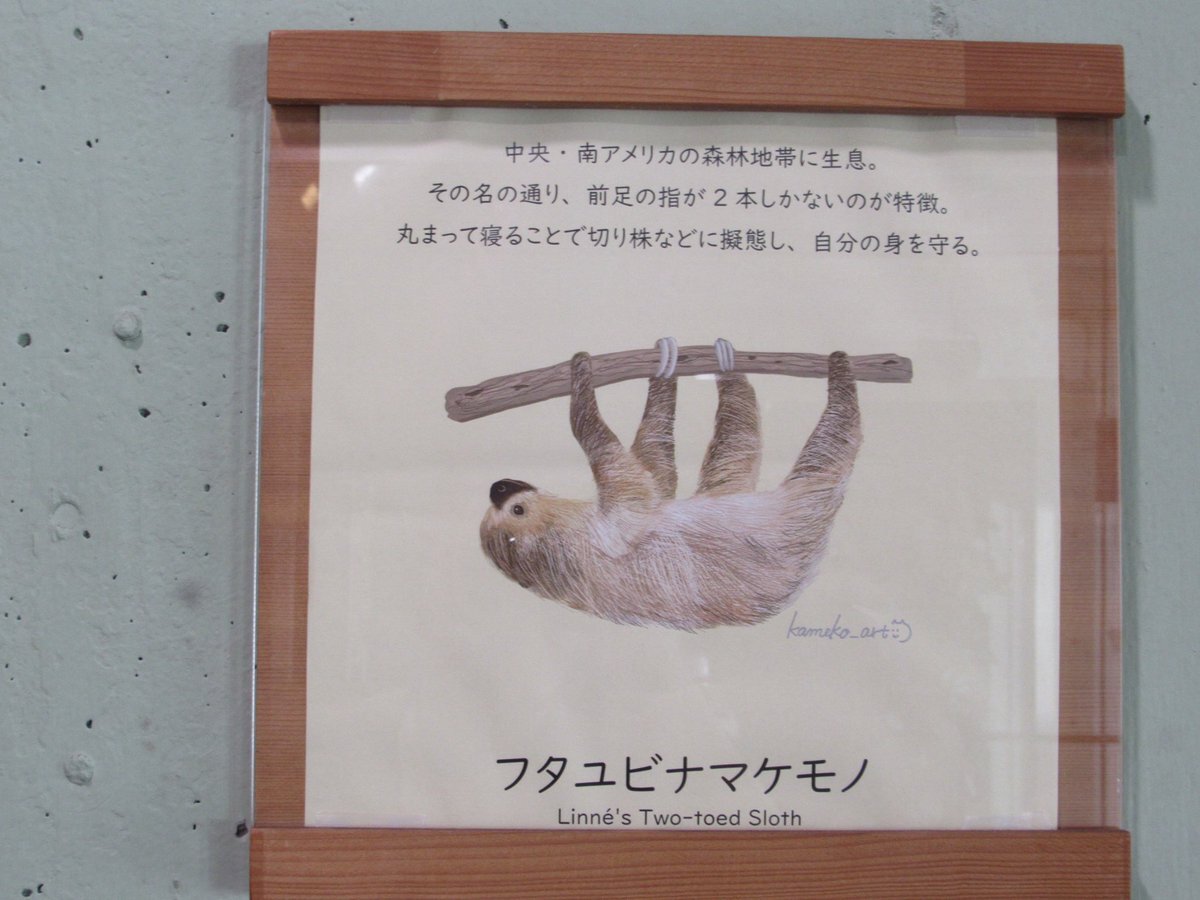 中央・南アメリカの森林地帯に生息。
その名の通り、前足の指が2本しかないのが特徴。
丸まって寝ることで切り株などに擬態し、自分の身を守る。
kameko_art
フタユビナマケモノ
Linné's Two-toed Sloth